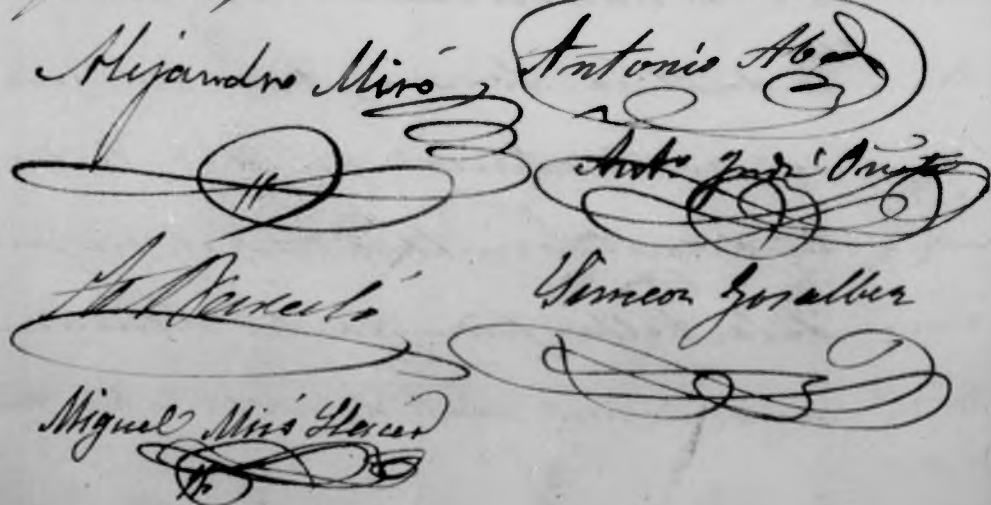 Alejandro Miró
Antonio Abad
Antº José
Barceló
Simeon Gosalbez
Miguel Miró Llacer